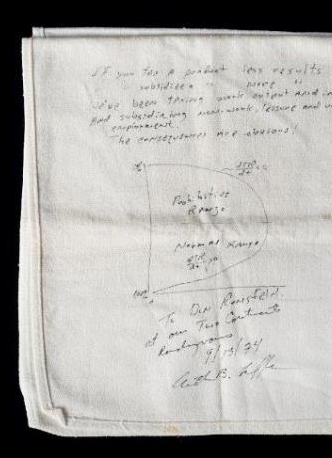 If you tax a product less results
subsidize a " more "
We've been taxing work, output and in
and subsidizing non-work, leisure and un
employment.
The consequences are obvious!
Prohibitive
Range
Normal Range
To Don Rumsfeld
at our Two Continents
Rendezvous
9/13/74
Arthur B. Laffer